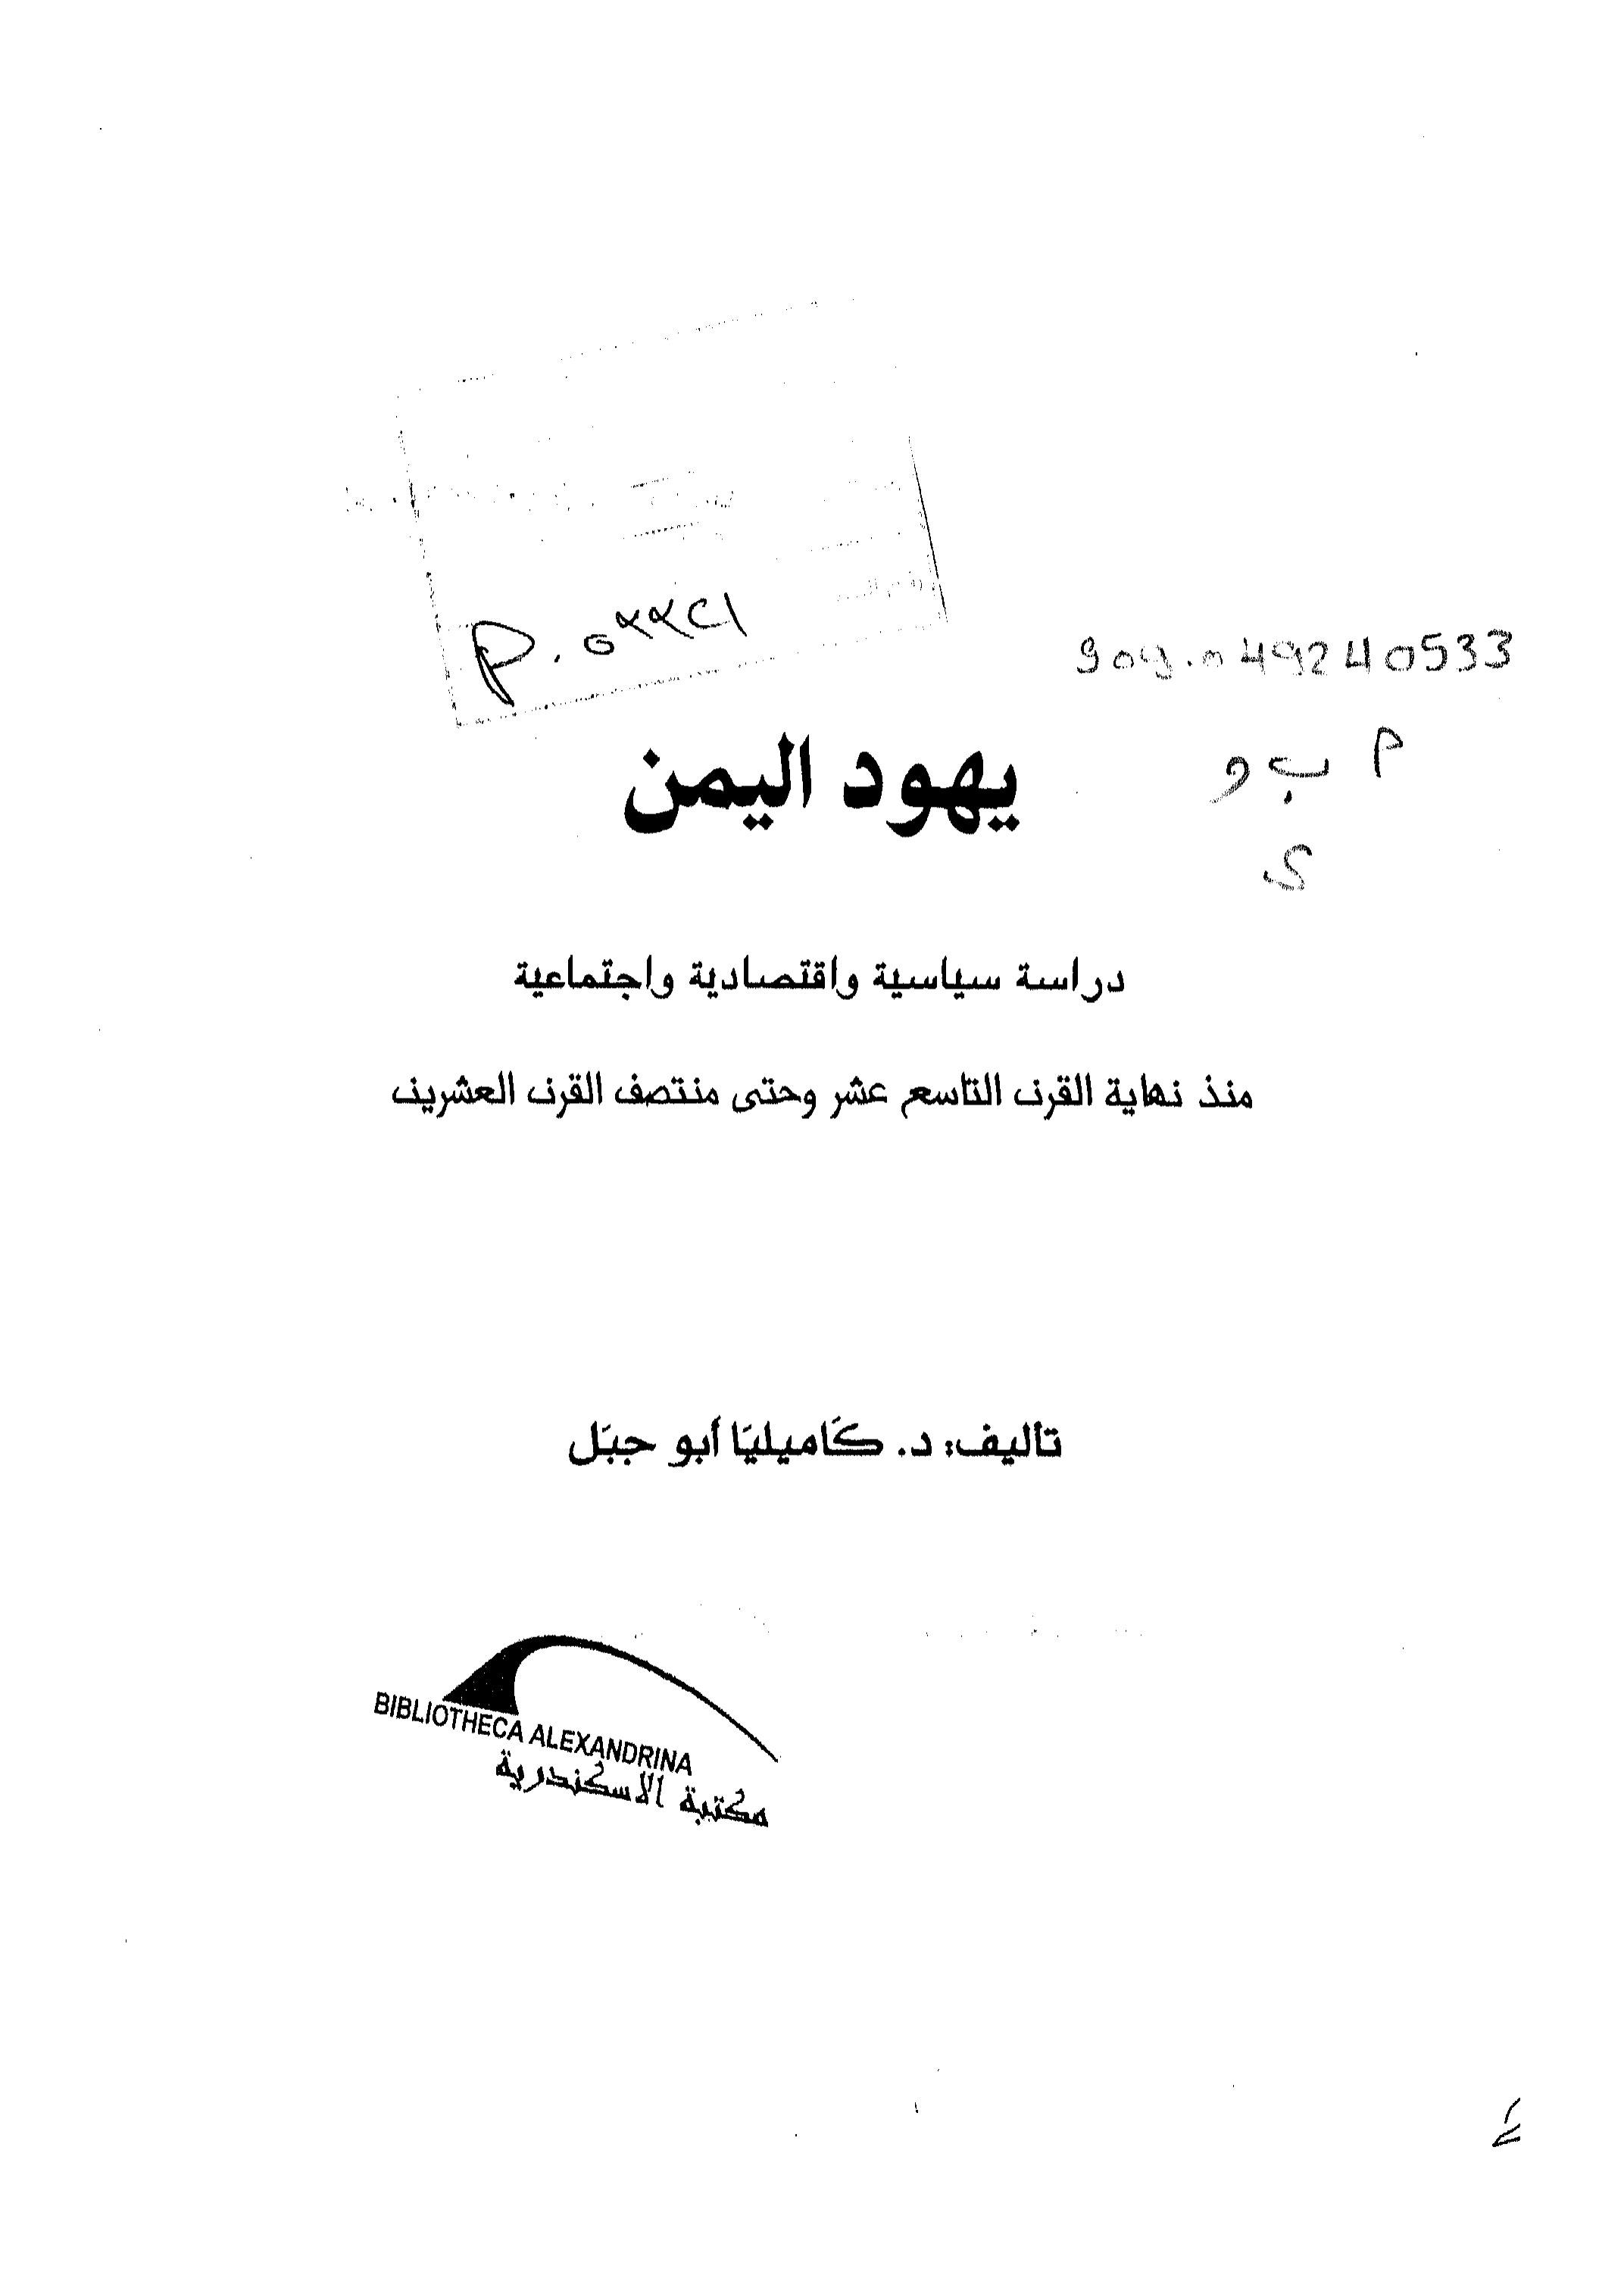 909.04924 0533
يهود اليمن
دراسة سياسية واقتصادية واجتماعية
منذ نهاية القرن التاسع عشر وحتى منتصف القرن العشرين
تأليف: د. كَاميليَا أبو جبَل
BIBLIOTHECA ALEXANDRINA
مكتبة الاسكندرية